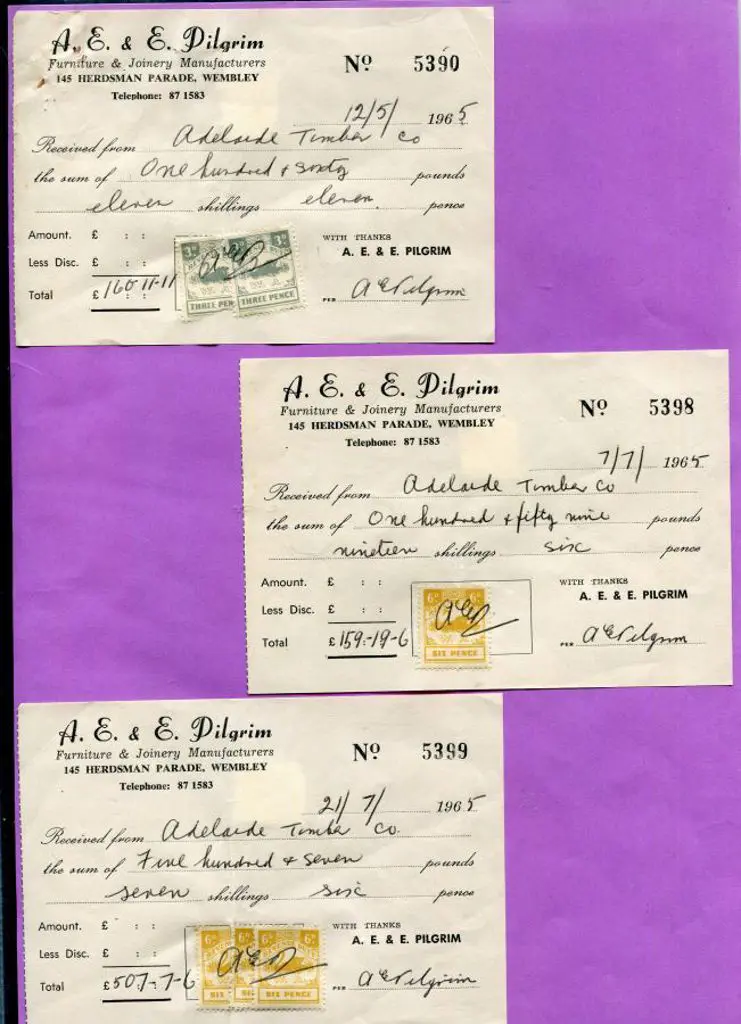 A. E. & E. Pilgrim
Furniture & Joinery Manufacturers
145 HERDSMAN PARADE, WEMBLEY
Telephone: 87 1583
Nº 5390
12/5/ 1965
Received from Adelaide Timber Co
the sum of One hundred & sixty pounds
eleven shillings eleven pence
Amount. £ : :
Less Disc. £ : :
Total £160-11-11
3D 3D
THREE PEN THREE PENCE
AEP
WITH THANKS
A. E. & E. PILGRIM
PER A E Pilgrim
A. E. & E. Pilgrim
Furniture & Joinery Manufacturers
145 HERDSMAN PARADE, WEMBLEY
Telephone: 87 1583
Nº 5398
7/7/ 1965
Received from Adelaide Timber Co
the sum of One hundred & fifty nine pounds
nineteen shillings six pence
Amount. £ : :
Less Disc. £ : :
Total £159-19-6
6D 6D
AEP
SIX PENCE
WITH THANKS
A. E. & E. PILGRIM
PER A E Pilgrim
A. E. & E. Pilgrim
Furniture & Joinery Manufacturers
145 HERDSMAN PARADE, WEMBLEY
Telephone: 87 1583
Nº 5399
21/7/ 1965
Received from Adelaide Timber Co.
the sum of Five hundred & seven pounds
seven shillings six pence
Amount. £ : :
Less Disc. £ : :
Total £507-7-6
6D 6D 6D 6D
AEP
SIX SIX SIX PENCE
WITH THANKS
A. E. & E. PILGRIM
PER A E Pilgrim